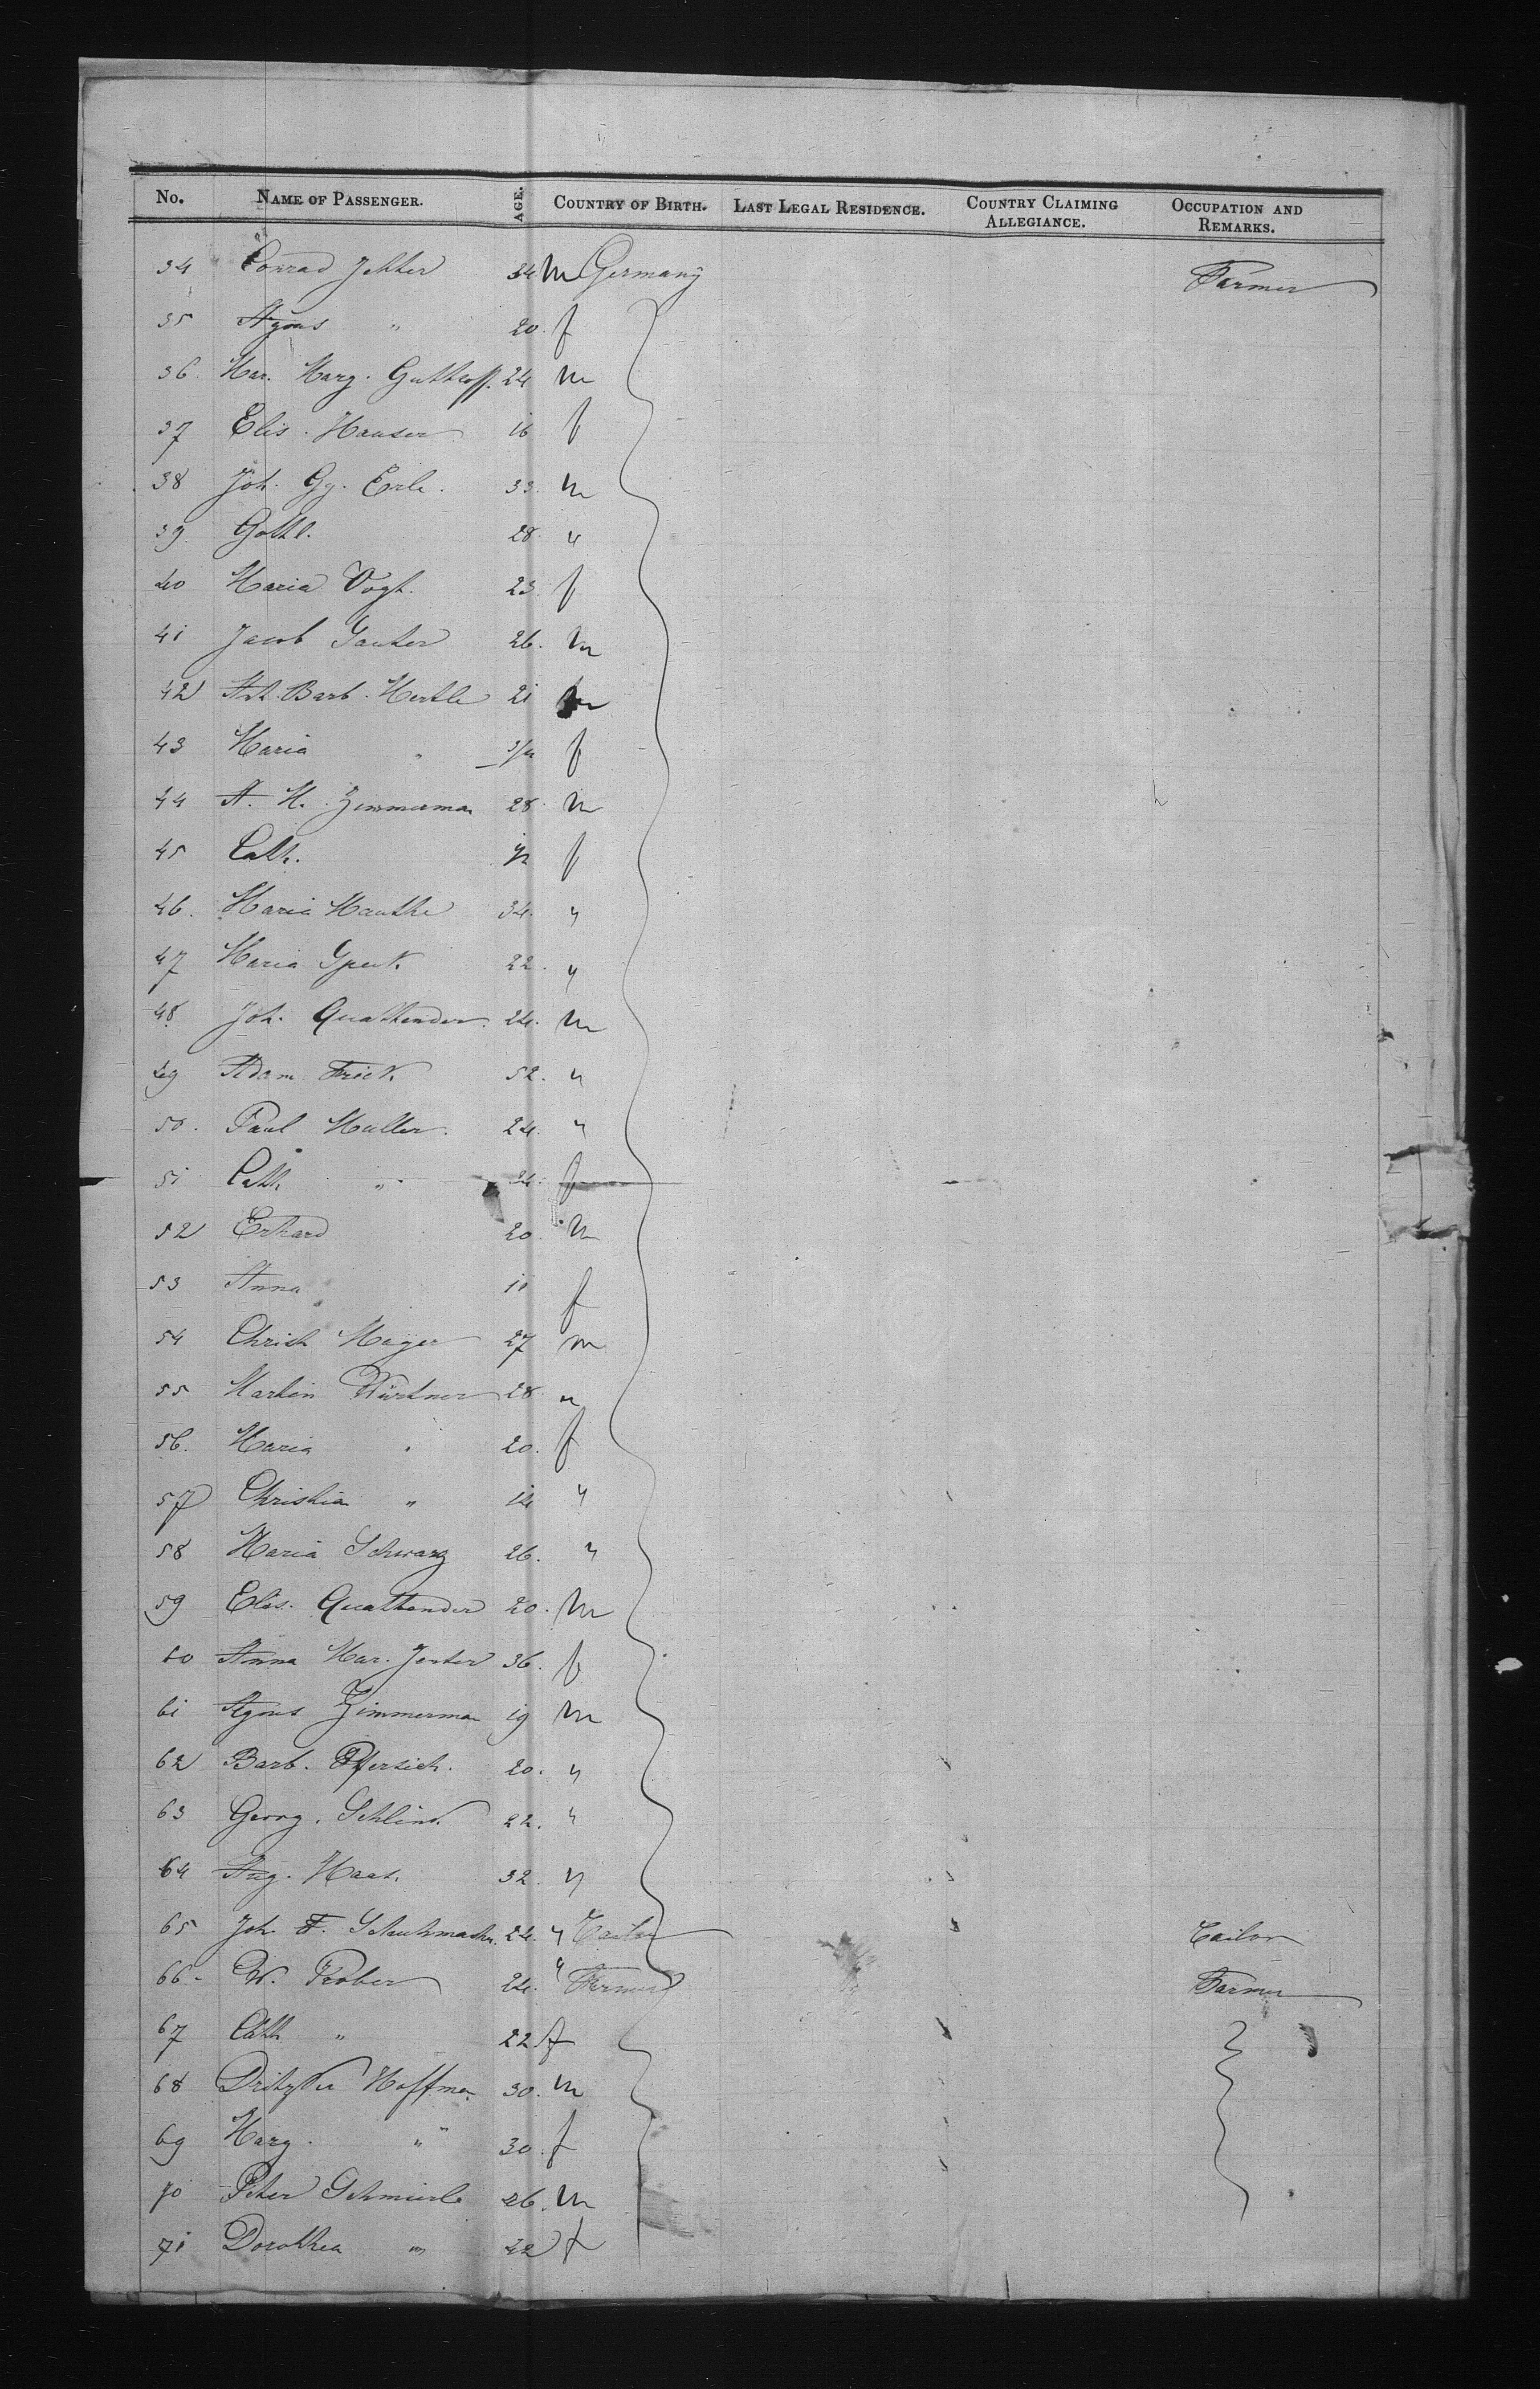 No. NAME OF PASSENGER. AGE. COUNTRY OF BIRTH. LAST LEGAL RESIDENCE. COUNTRY CLAIMING ALLEGIANCE. OCCUPATION AND REMARKS.
34 Conrad 34 m Germany Farmer
35 Agnes " 20. f
36 Mar. Marg. 24 m
37 Elis. Hauser 16 f
38 Joh. Gg. Erle. 33. m
39 Gottl. 28. "
40 Maria Vogt. 23. f
41 Jacob Sauter 26. m
42 Barb. Hertle 21 m
43 Maria " 3/4 f
44 A. M. Zimmerman 28. m
45 Cath. f
46. Maria Mauthe 34. "
47 Maria 22. "
48 Joh. Quattender. 24. m
49 Adam Frick. 52. "
50. Paul Muller. 24. "
51 Cath " 24. f
52 Erhard 20 m
53 Anna 11 f
54 Christ Meyer 27 m
55 Martin Würtner 28. "
56. Maria " 20. f
57 Christian " 14 "
58 Maria Schwarz 26. "
59 Elis. Quattender 20. m
60 Anna Mar. Jester 36. f
61 Agnes Zimmerman 19 m
62 Barb. Pfersich. 20. "
63 Georg. 22. "
64 Aug. Haas. 32. "
65 Joh. F. Schuhmacher. 24. " Tailor Tailor
66- W. 24. " Farmer Farmer
67 Cath " 22 f
68 Hoffman 30. m
69 Marg. " 30. f
70 Peter Schmierle 26. m
71 Dorothea " 22 f